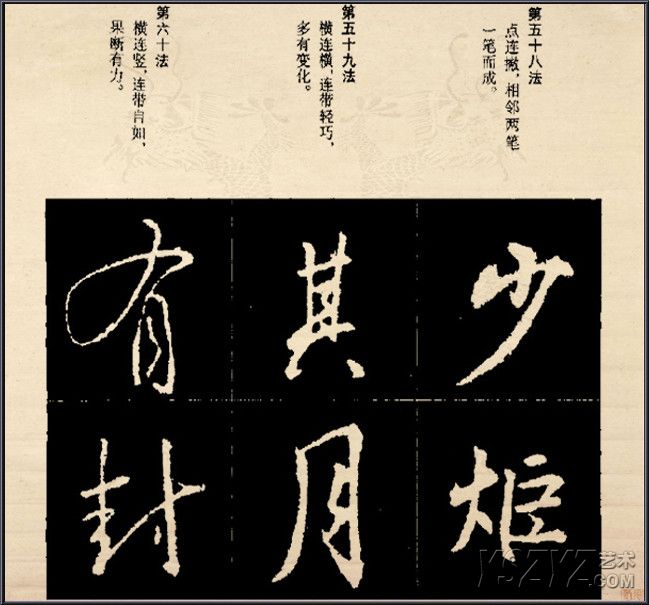 第五十八法
点连撇，相邻两笔
一笔而成。
第五十九法
横连横，连带轻巧，
多有变化。
第六十法
横连竖，连带自如，
果断有力。
少
其
月
有
封
艺术
.COM